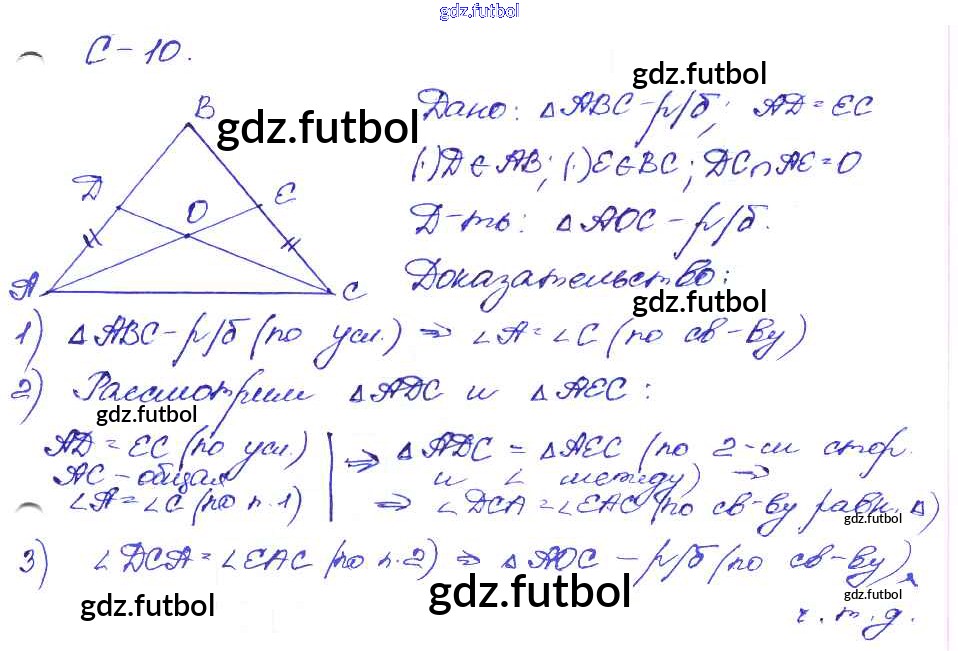 gdz.futbol
С-10.
gdz.futbol
B
gdz.futbol
Дано: △ABC-р/б; AD=EC
D
E
O
(·)D∈AB; (·)E∈BC; DC∩AE=O
Д-ть: △AOC-р/б.
A
C
Доказательство:
gdz.futbol
1) △ABC-р/б (по усл.) ⇒ ∠A=∠C (по св-ву)
2) Рассмотрим △ADC и △AEC:
gdz.futbol
AD=EC (по усл.) | ⇒ △ADC = △AEC (по 2-м стор.
AC-общая и ∠ между) ⇒
∠A=∠C (по п.1) ⇒ ∠DCA=∠EAC (по св-ву равн. △)
gdz.futbol
3) ∠DCA=∠EAC (по п.2) ⇒ △AOC - р/б (по св-ву),
gdz.futbol
gdz.futbol
gdz.futbol
ч.т.д.